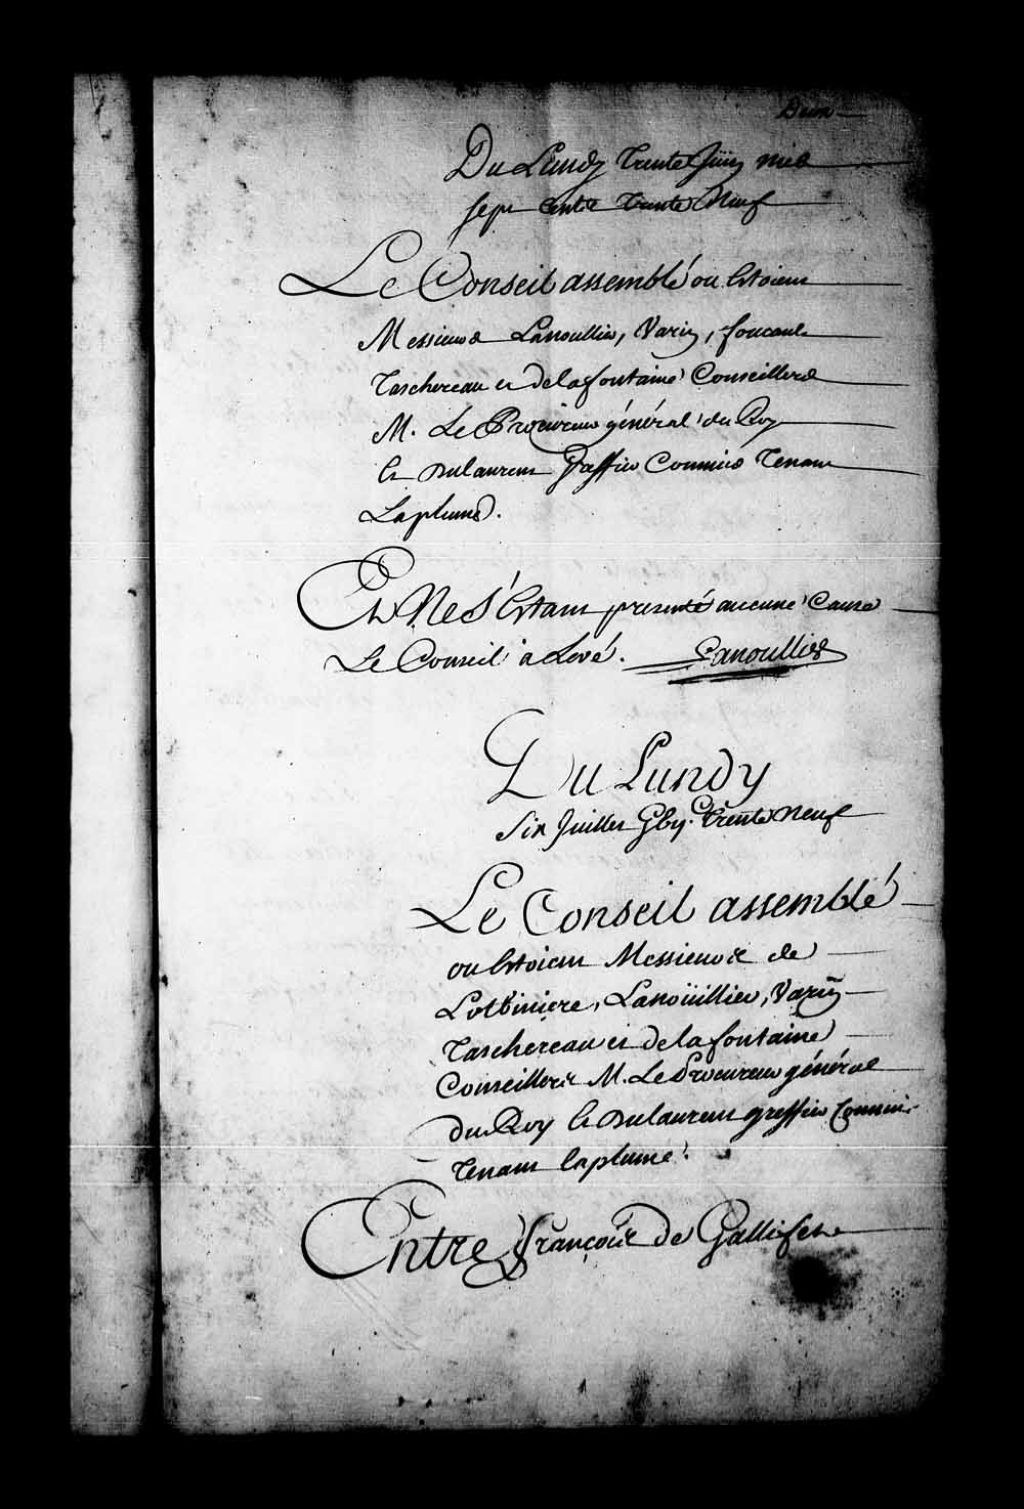 Du Lundy trente Juin mil
sept cents trente Neuf
Le Conseil assemblé ou Estoient
Messieurs Lanoullier, Varin, foucault
Taschereau et delafontaine Conseillers
M. Le Procureur général du Roy
et dulaurent Greffier Commis Tenant
La plume.
Et Ne S'Estant presenté aucune Cause
Le Conseil a Levé. Lanoullier
Du Lundy
Six Juillet trente neuf
Le Conseil assemblé
ou Estoient Messieurs de
Lotbiniere, Lanoüillier, Varin
Taschereau et delafontaine
Conseillers M. Le Procureur général
du Roy et dulaurent greffier Commis
Tenant la plume.
Entre françois de Gallifet